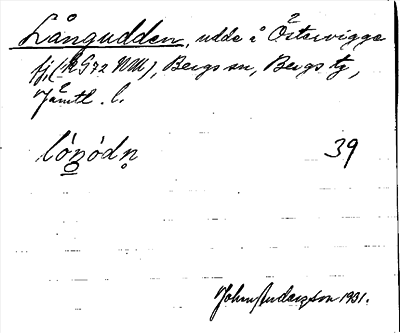 Långudden, udde å Östervigge
fj, (RG72 NM), Bergs sn, Bergs tg,
Jämtl. l.
lóŋódn̥ 39
John Andersson 1931.